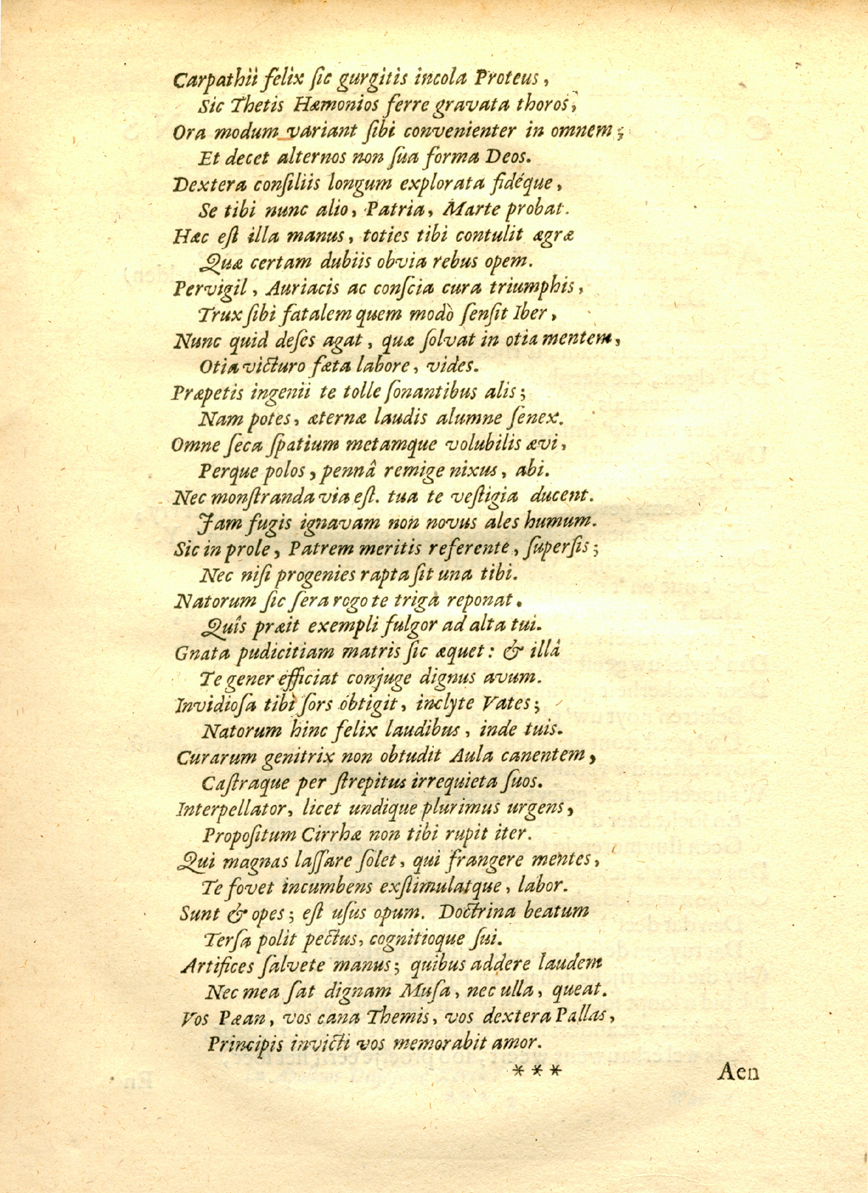 Carpathii felix ſic gurgitis incola Proteus,
Sic Thetis Hæmonios ferre gravata thoros,
Ora modum variant ſibi convenienter in omnem;
Et decet alternos non ſua forma Deos.
Dextera conſiliis longum explorata fidéque,
Se tibi nunc alio, Patria, Marte probat.
Hæc eſt illa manus, toties tibi contulit ægræ
Quæ certam dubiis obvia rebus opem.
Pervigil, Auriacis ac conſcia cura triumphis,
Trux ſibi fatalem quem modò ſenſit Iber,
Nunc quid deſes agat, quæ ſolvat in otia mentem,
Otia victuro fœta labore, vides.
Præpetis ingenii te tolle ſonantibus alis;
Nam potes, æternæ laudis alumne ſenex.
Omne ſeca ſpatium metamque volubilis ævi,
Perque polos, pennâ remige nixus, abi.
Nec monſtranda via eſt. tua te veſtigia ducent.
Jam fugis ignavam non novus ales humum.
Sic in prole, Patrem meritis referente, ſuperſis;
Nec niſi progenies rapta ſit una tibi.
Natorum ſic ſera rogo te triga reponat.
Quîs præit exempli fulgor ad alta tui.
Gnata pudicitiam matris ſic æquet: & illâ
Te gener efficiat conjuge dignus avum.
Invidioſa tibi ſors obtigit, inclyte Vates;
Natorum hinc felix laudibus, inde tuis.
Curarum genitrix non obtudit Aula canentem,
Caſtraque per ſtrepitus irrequieta ſuos.
Interpellator, licet undique plurimus urgens,
Propoſitum Cirrhæ non tibi rupit iter.
Qui magnas laſſare ſolet, qui frangere mentes,
Te fovet incumbens exſtimulatque, labor.
Sunt & opes; eſt uſus opum. Doctrina beatum
Terſa polit pectus, cognitioque ſui.
Artifices ſalvete manus; quibus addere laudem
Nec mea ſat dignam Muſa, nec ulla, queat.
Vos Pæan, vos cana Themis, vos dextera Pallas,
Principis invicti vos memorabit amor.
*** Aen